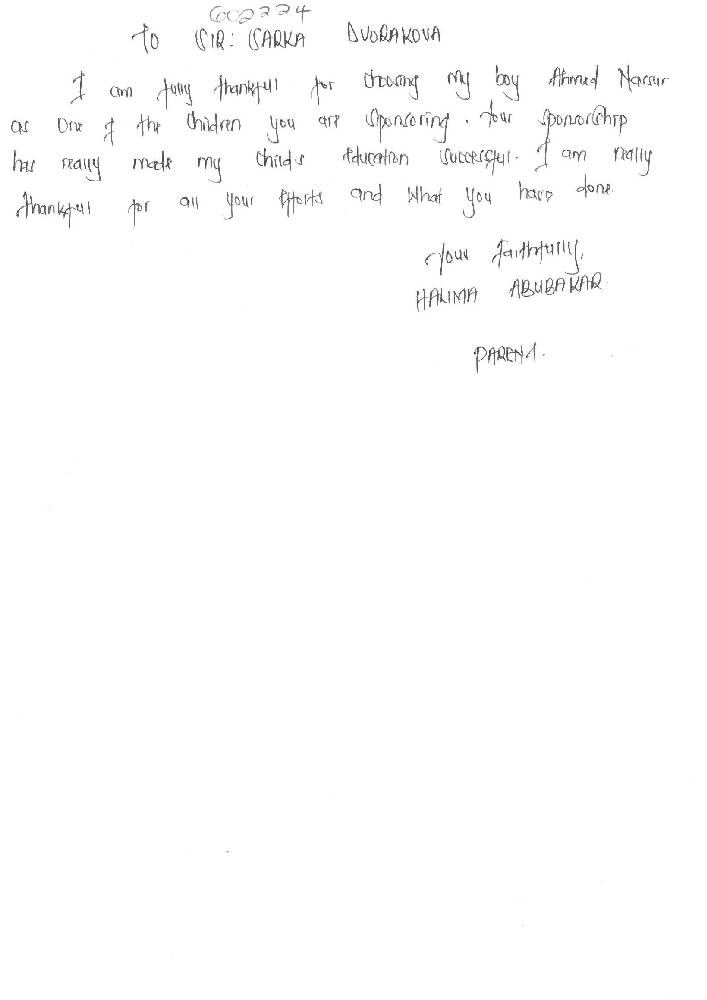 602224
TO SIR: SARKA DVORAKOVA
I am fully thankful for choosing my boy Ahmed Nassur
as one of the children you are sponsoring. Your sponsorship
has really made my child's education successful. I am really
thankful for all your efforts and what you have done.
Your faithfully,
HALIMA ABUBAKAR
PARENT.